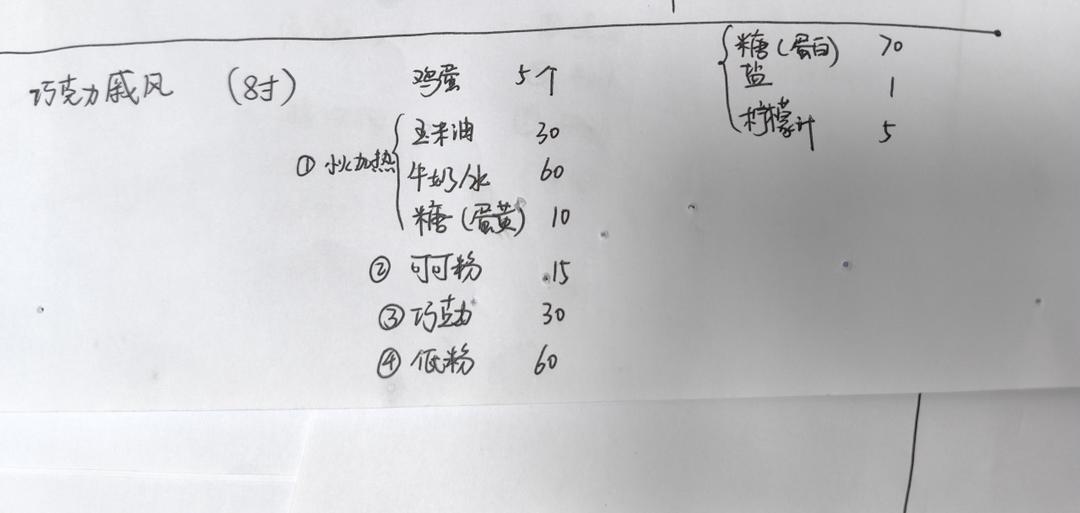 巧克力戚风 (8寸)
鸡蛋 5个
① 小火加热
玉米油 30
牛奶/水 60
糖(蛋黄) 10
② 可可粉 15
③ 巧克力 30
④ 低粉 60
糖(蛋白) 70
盐 1
柠檬汁 5